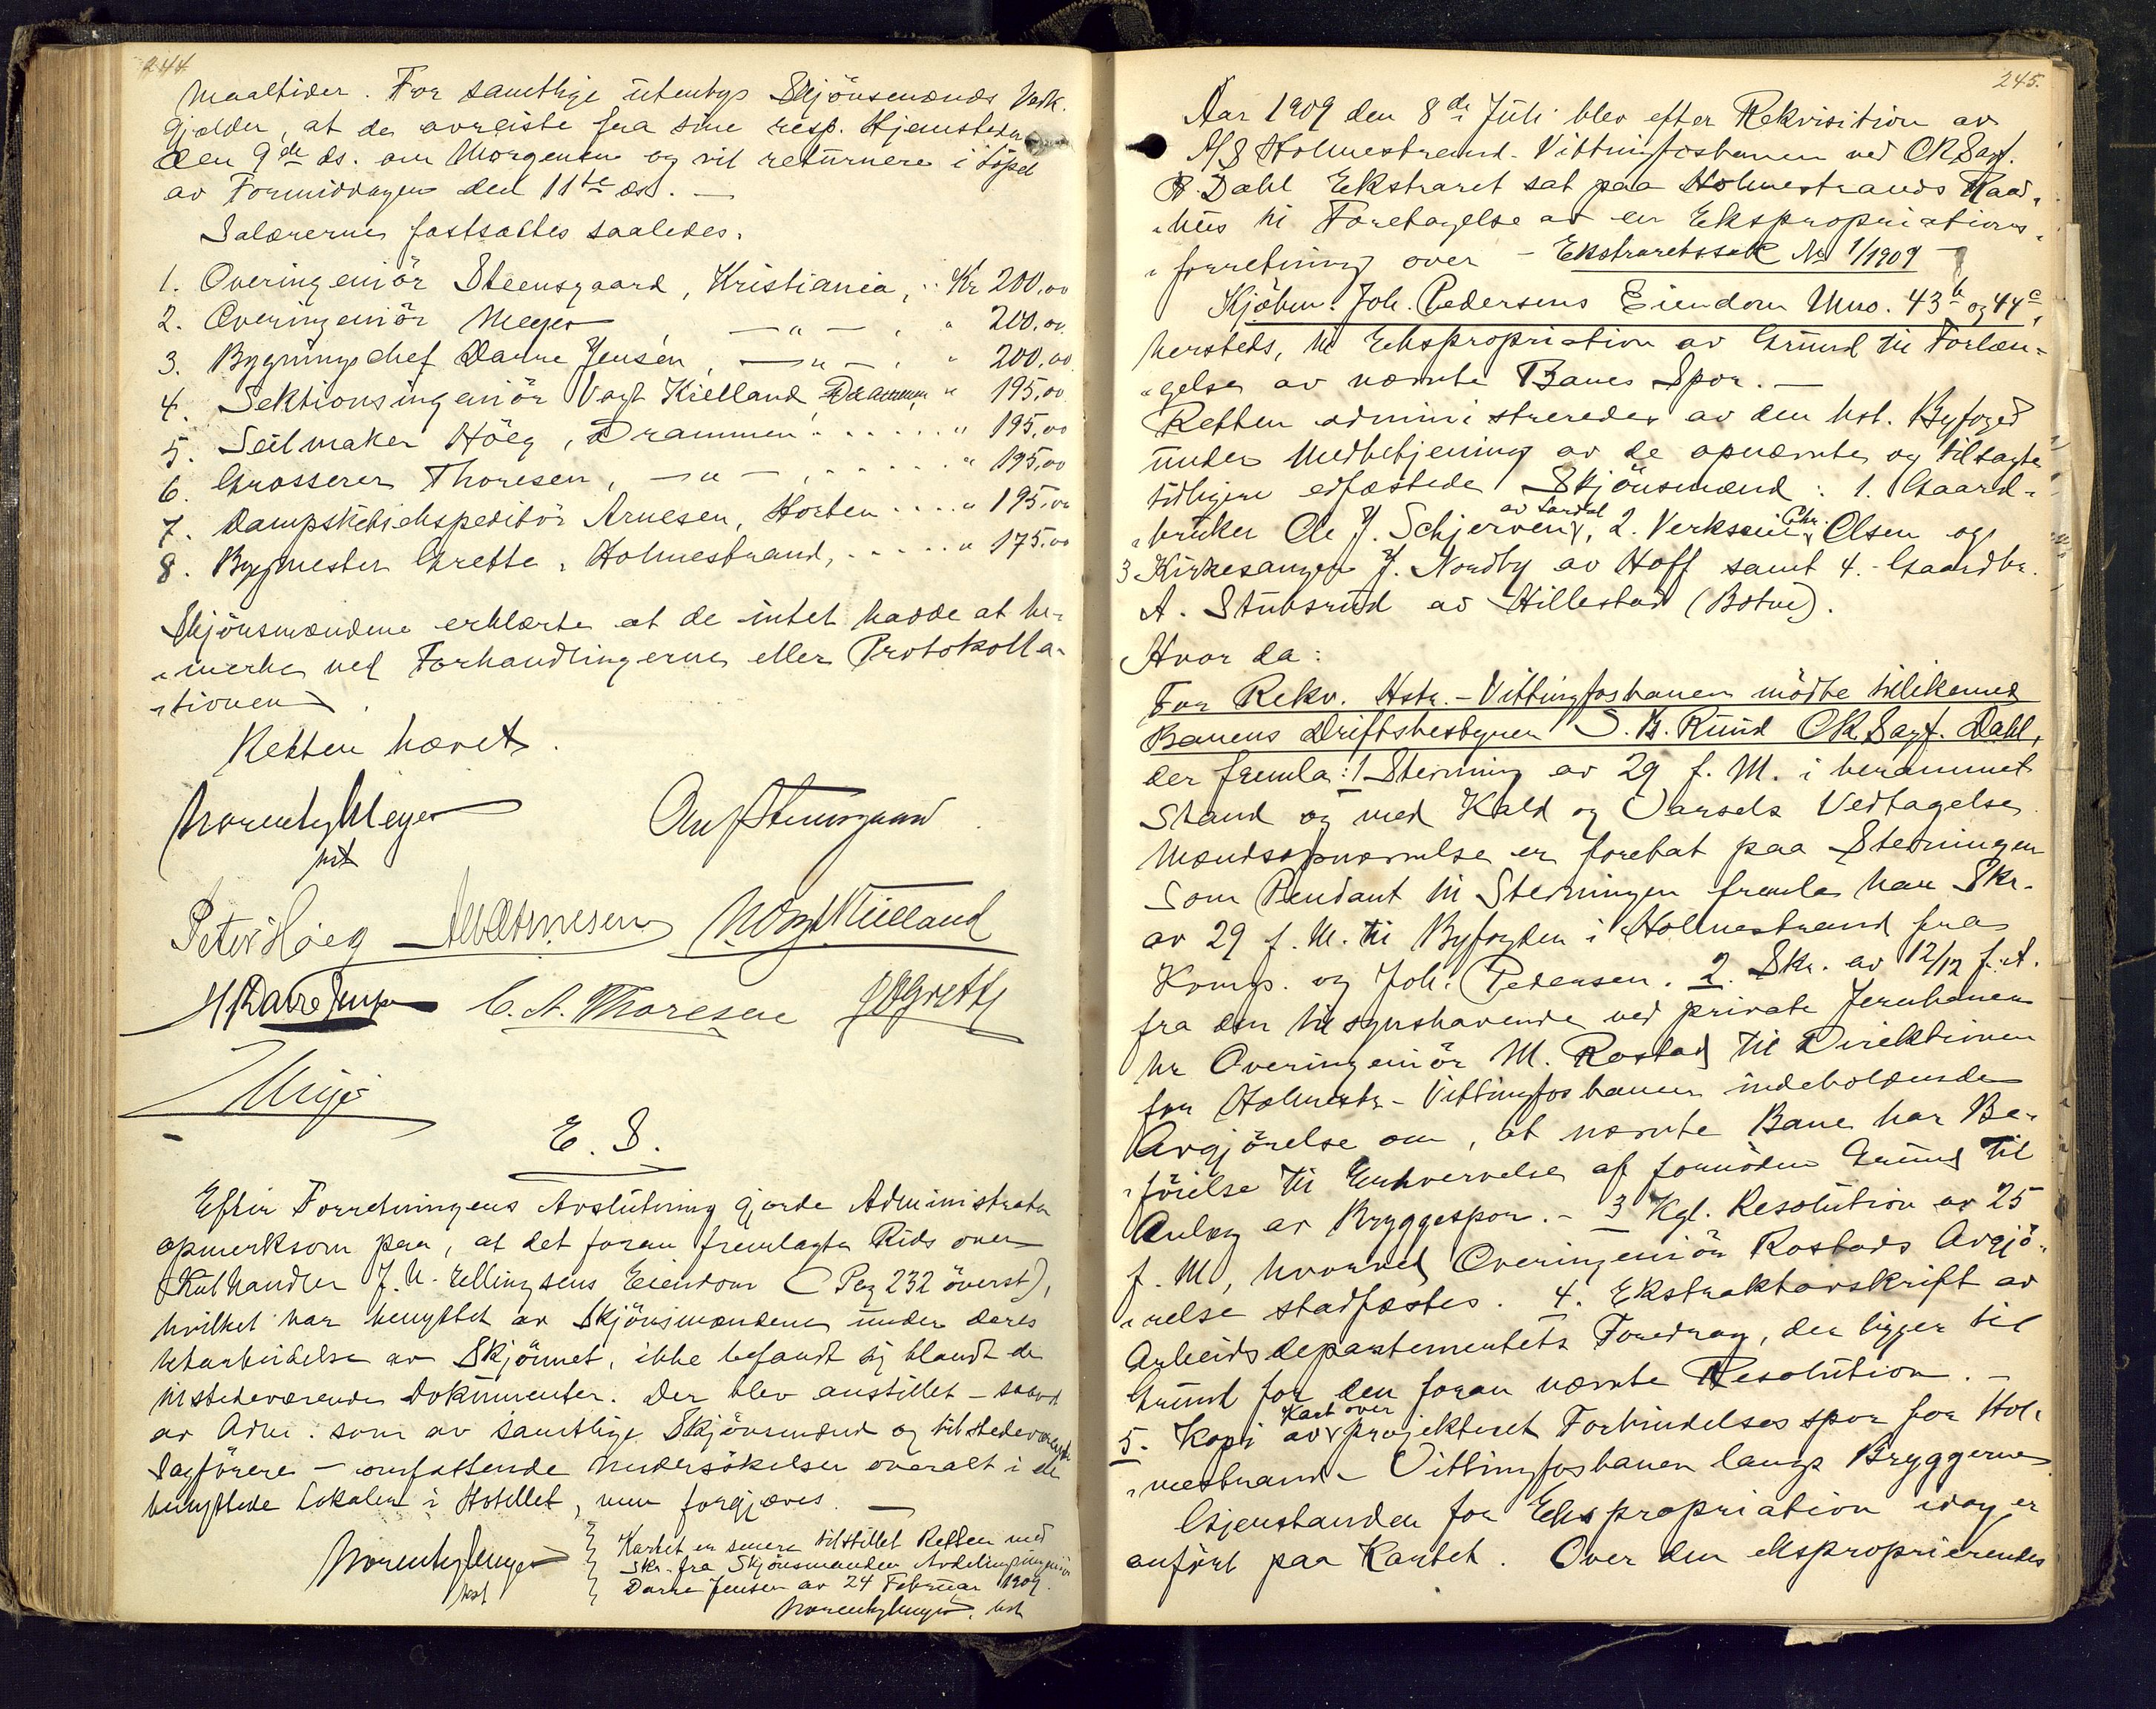 244
Maaltider. For samtlige utenbys Skjönsmænds Vedk.
gjælder, at de avreiste fra sine resp. Hjemsteder
den 9de ds. om Morgenen og vil returnere i Löpet
av Formiddagen den 11te ds. —
Salærerne fastsattes saaledes.
1. Overingeniör Steensgaard, Kristiania, .. Kr 200,00
2. Overingeniör Meyer — " — , " 200.00
3. Bygningschef Darre Jensen, — " — . " 200,00
4. Sektionsingeniör Vogt Kielland, Drammen " 195,00
5. Seilmaker Höeg, Drammen . . . . . . " 195,00
6. Grosserer Thoresen, — " — , . . . . . . " 195,00
7. Dampskibsekspeditör Arnesen, Horten . . . . " 195.00
8. Bygmester Grette, Holmestrand, . . . . . " 175.00
Skjönsmændene erklærte at de intet hadde at be-
"merke ved Forhandlingerne eller Protokolla-
"tionen.
Retten hævet.
Meyer Olaf Steensgaard
kst
Peter Höeg Arnesen Vogt Kielland
Darre Jensen C. A. Thoresen Grette
E. S.
Efter Forretningens Avslutning gjorde Administrator
opmerksom paa, at det foran fremlagte Rids over
Kulhandler J. N. Ellingsens Eiendom (Pag 232 överst),
hvilket var benyttet av Skjönsmændene under deres
Utarbeidelse av Skjönnet, ikke befandt sig blandt de
tilstedeværende Dokumenter. Der blev anstillet – saavel
av Adm: som av samtlige Skjönsmænd og tilstedeværende
Sagförere – omfattende Undersökelser overalt i de
benyttede Lokaler i Hotellet, men forgjæves. —
Kartet er senere tilstillet Retten med
Skr. fra Skjönsmanden Avdelingsingeniör
Darre Jensen av 24 Februar 1909.
kst
245.
Aar 1909 den 8de Juli blev efter Rekvisition av
A/S Holmestrand-Vittingfosbanen ved O.R.Sagf.
Dahl Ekstraret sat paa Holmestrands Raad-
"hus til Foretagelse av en Ekspropriations-
"forretning over – Ekstraretssak No 1/1909 –
Kjöbm. Joh. Pedersens Eiendom Mno. 43b og 44c,
hersteds, til Ekspropriation av Grund til Forlæn-
"gelse av nævnte Banes Spor. —
Retten administreredes av den kst. Byfoged
under Medbetjening av de opnævnte og tilsagte
tidligere edfæstede Skjönsmænd: 1. Gaard-
"bruker Ole J. Schjerven av Sandal, 2. Verkseier Chr. Olsen og
3 Kirkesanger J. Nordby av Hoff samt 4. Gaardbr.
A. Stubsrud av Hillestad (Botne).
Hvor da:
For Rekv. Hstr.-Vittingfosbanen mödte tillikemed
Banens Driftsbestyrer S. B. Ruud O.R.Sagf. Dahl,
der fremla: 1 Stevning av 29 f. M. i berammet
Stand og med Kald og Varsels Vedtagelse
Mændsopnævnelse er foretat paa Stevningen
Som Pendant til Stevningen fremla han Skr.
av 29 f. M. til Byfogden i Holmestrand fra
Komp. og Joh: Pedersen. 2. Skr. av 12/12 f. A.
fra den tilsynshavende ved private Jernbaner
hr Overingeniör M. Rostad til Direktionen
for Holmestr-Vittingfosbanen indeholdende
Avgjörelse om, at nævnte Bane har Be-
"föielse til Erhvervelse af fornöden Grund til
Anlæg av Bryggespor. – 3 Kgl. Resolution av 25
f. M, hvorved Overingeniör Rostads Avgjö-
"relse stadfæstes. 4. Ekstraktavskrift av
Arbeidsdepartementets Foredrag, der ligger til
Grund for den foran nævnte Resolution. –
5. Kopi av Kart over projektert Forbindelsesspor for Hol-
"mestrand-Vittingfosbanen langs Bryggerne
Gjenstanden for Ekspropriation idag er
anfört paa Kartet. Over den eksproprierendes